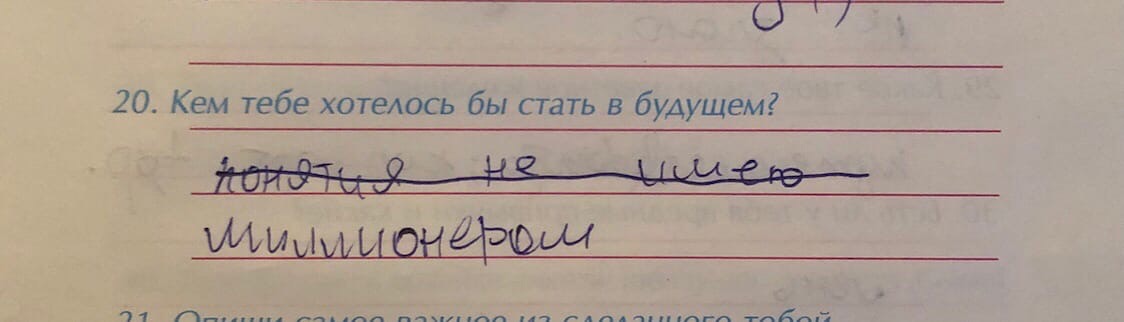 20. Кем тебе хотелось бы стать в будущем?
понятия не имею
Миллионером
21. Опиши самое важное из сделанного тобой